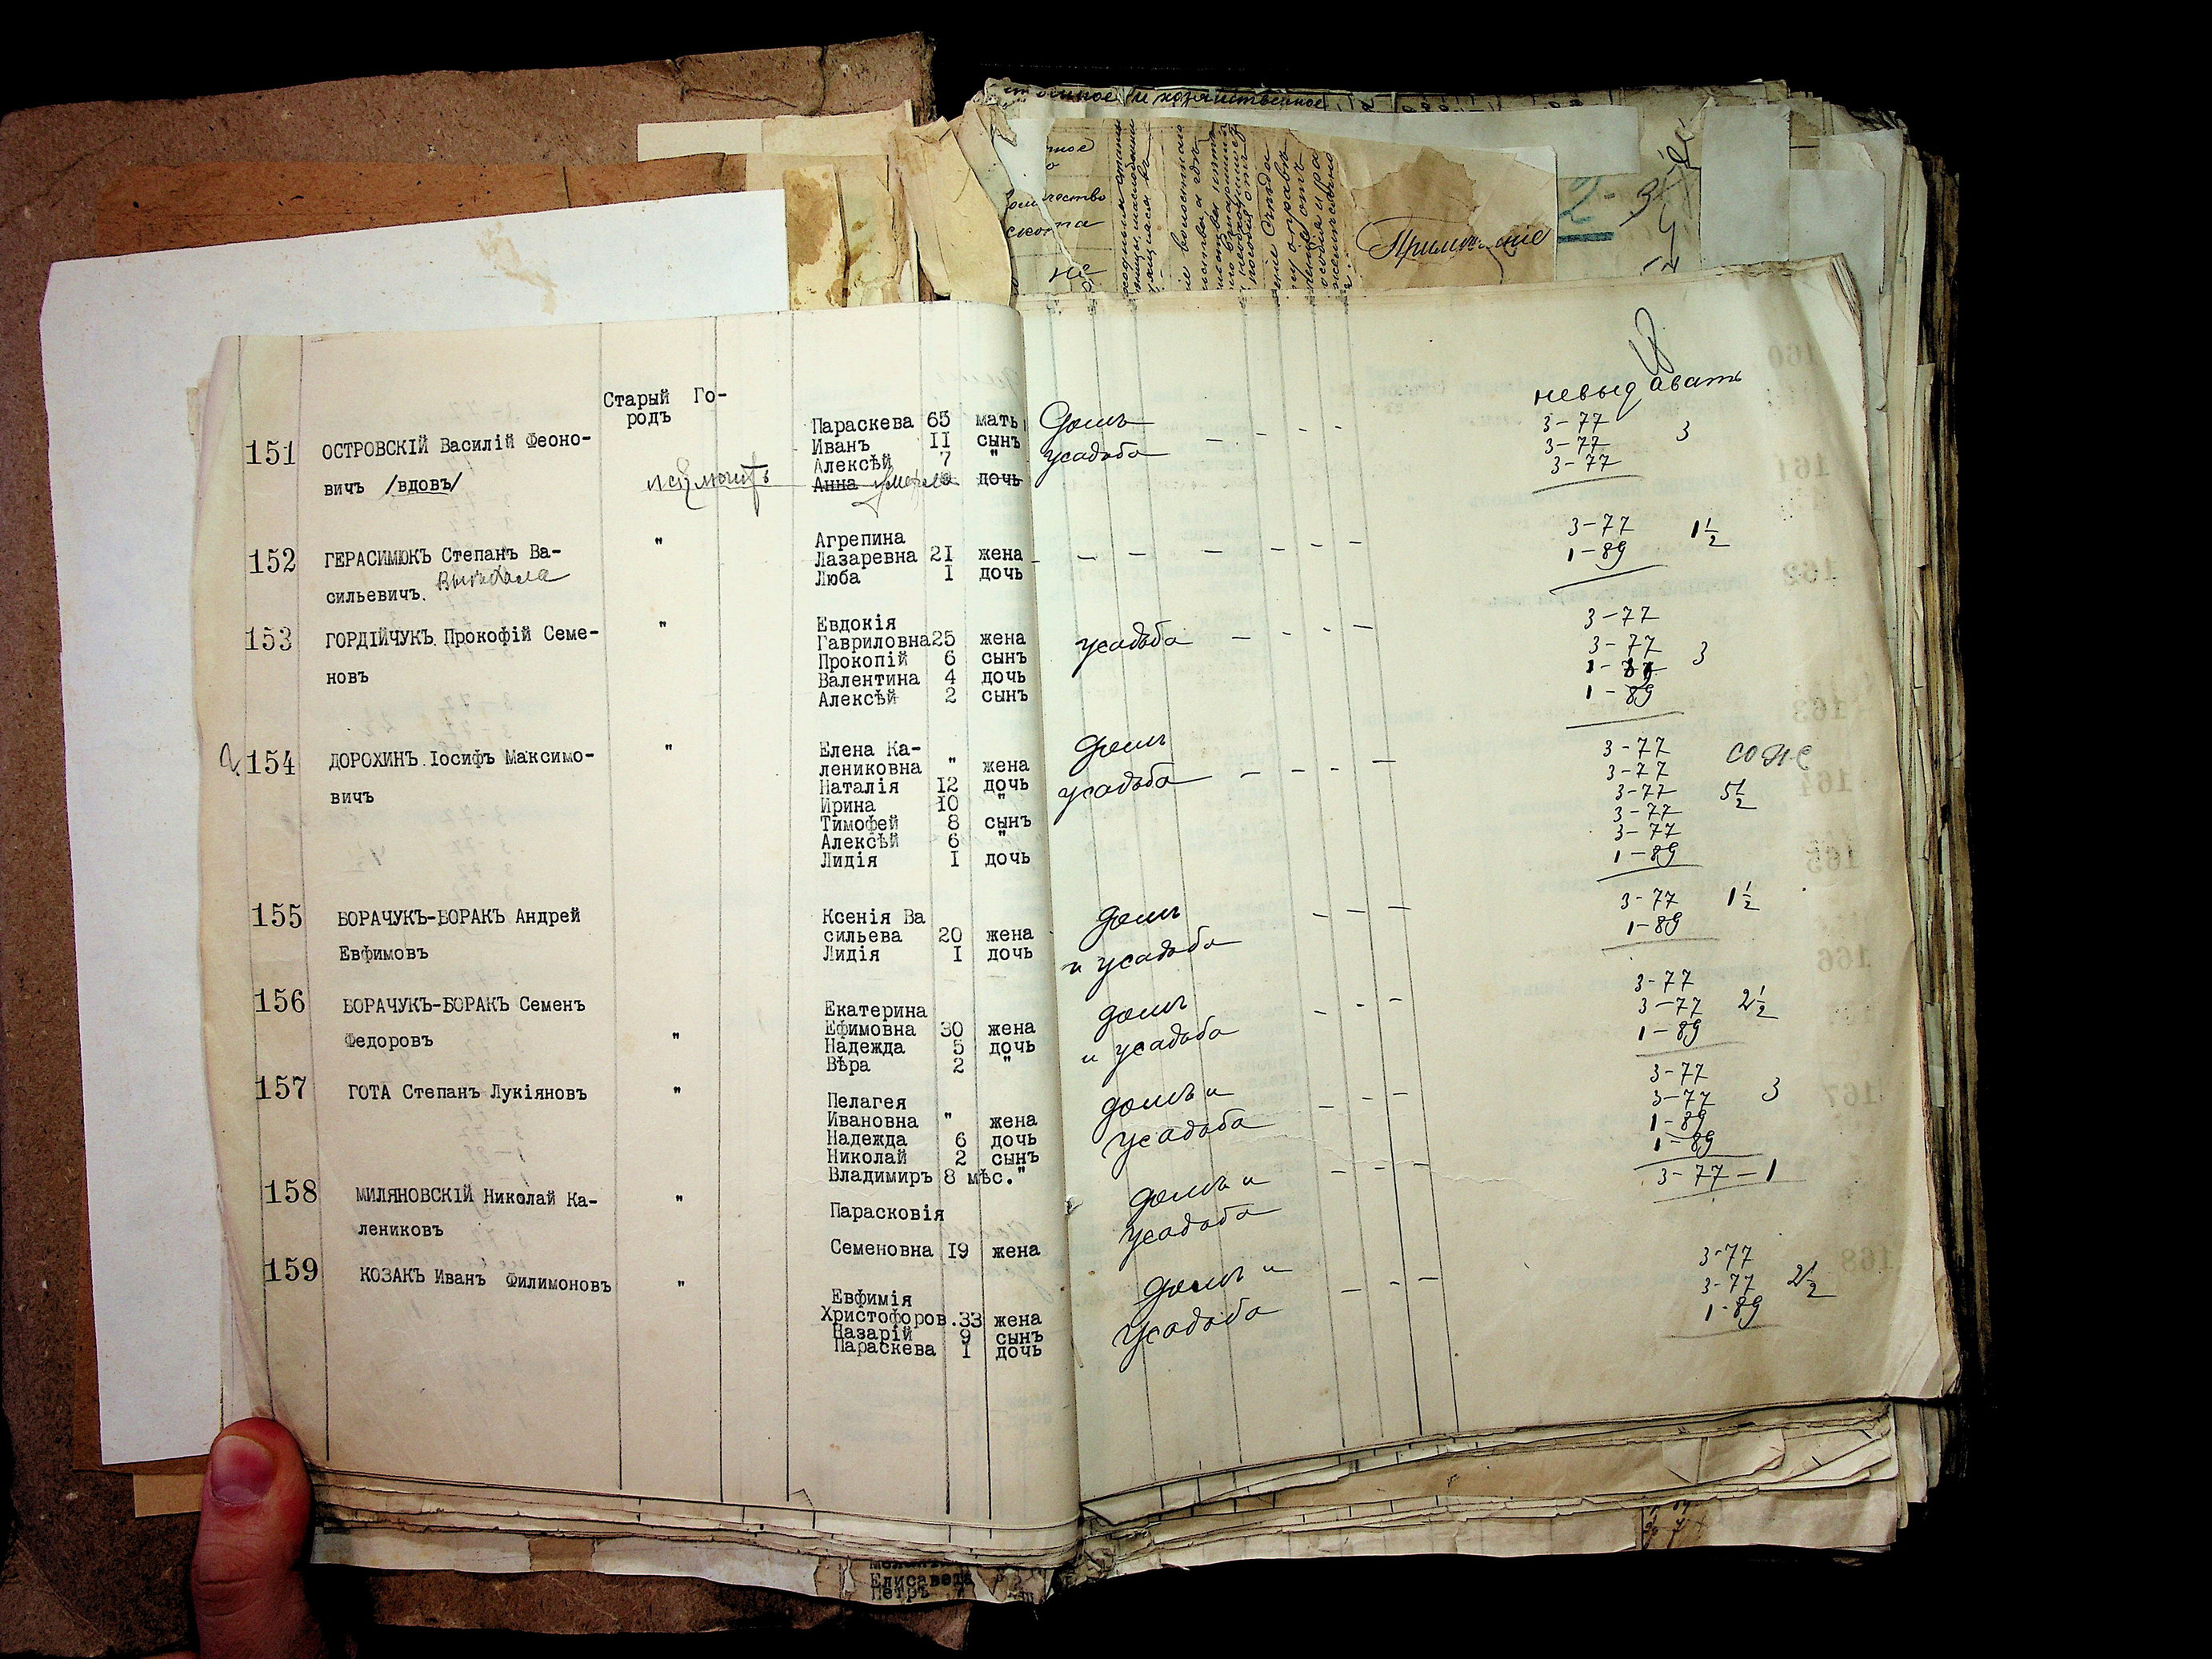 Примѣчаніе
не выдавать
Старый Го-
родъ
151 ОСТРОВСКІЙ Василій Феоно-
вичъ /вдовъ/
Параскева 65 мать
Иванъ II сынъ
Алексѣй 7 "
Анна умерла дочь
Домъ
усадьба - - - -
3-77
3-77 3
3-77
152 ГЕРАСИМЮКЪ Степанъ Ва-
сильевичъ. Выѣхала
"
Агрепина
Лазаревна 2I жена
Люба I дочь
- - - - - - -
3-77 1 1/2
1-89
153 ГОРДІЙЧУКЪ Прокофій Семе-
новъ
"
Евдокія
Гавриловна 25 жена
Прокопій 6 сынъ
Валентина 4 дочь
Алексѣй 2 сынъ
усадьба - - - -
3-77
3-77
1-89 3
1-89
154 ДОРОХИНЪ Іосифъ Максимо-
вичъ
"
Елена Ка-
лениковна " жена
Наталія I2 дочь
Ирина I0 "
Тимофей 8 сынъ
Алексѣй 6 "
Лидія I дочь
домъ
усадьба - - - -
3-77
3-77
3-77 5 1/2
3-77
3-77
1-89
155 БОРАЧУКЪ-БОРАКЪ Андрей
Евфимовъ
Ксенія Ва
сильева 20 жена
Лидія I дочь
домъ
и усадьба - - -
3-77 1 1/2
1-89
156 БОРАЧУКЪ-БОРАКЪ Семенъ
Федоровъ
"
Екатерина
Ефимовна 30 жена
Надежда 5 дочь
Вѣра 2 "
домъ
и усадьба - - -
3-77
3-77 2 1/2
1-89
157 ГОТА Степанъ Лукіяновъ
"
Пелагея
Ивановна " жена
Надежда 6 дочь
Николай 2 сынъ
Владимиръ 8 мѣс. "
домъ и
усадьба - - -
3-77
3-77 3
1-89
1-89
158 МИЛЯНОВСКІЙ Николай Ка-
лениковъ
"
Парасковія
Семеновна I9 жена
домъ и
усадьба - - - -
3-77-1
159 КОЗАКЪ Иванъ Филимоновъ
"
Евфимія
Христофоров. 33 жена
Назарій 9 сынъ
Параскева I дочь
домъ и
усадьба - - -
3-77
3-77 2 1/2
1-89
Елисавета
Петръ 7